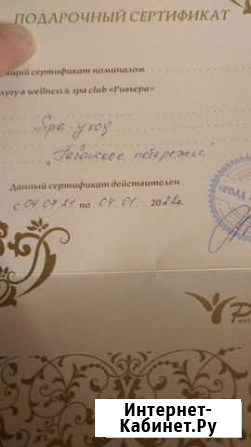 ПОДАРОЧНЫЙ СЕРТИФИКАТ
ящий сертификат номиналом
слугу в wellness & spa club «Ривьера»
Spa-уход
"Гавайское побережье"
Данный сертификат действителен
с 04.07.21 по 04.01. 2022г.
Интернет-
Кабинет.Ру